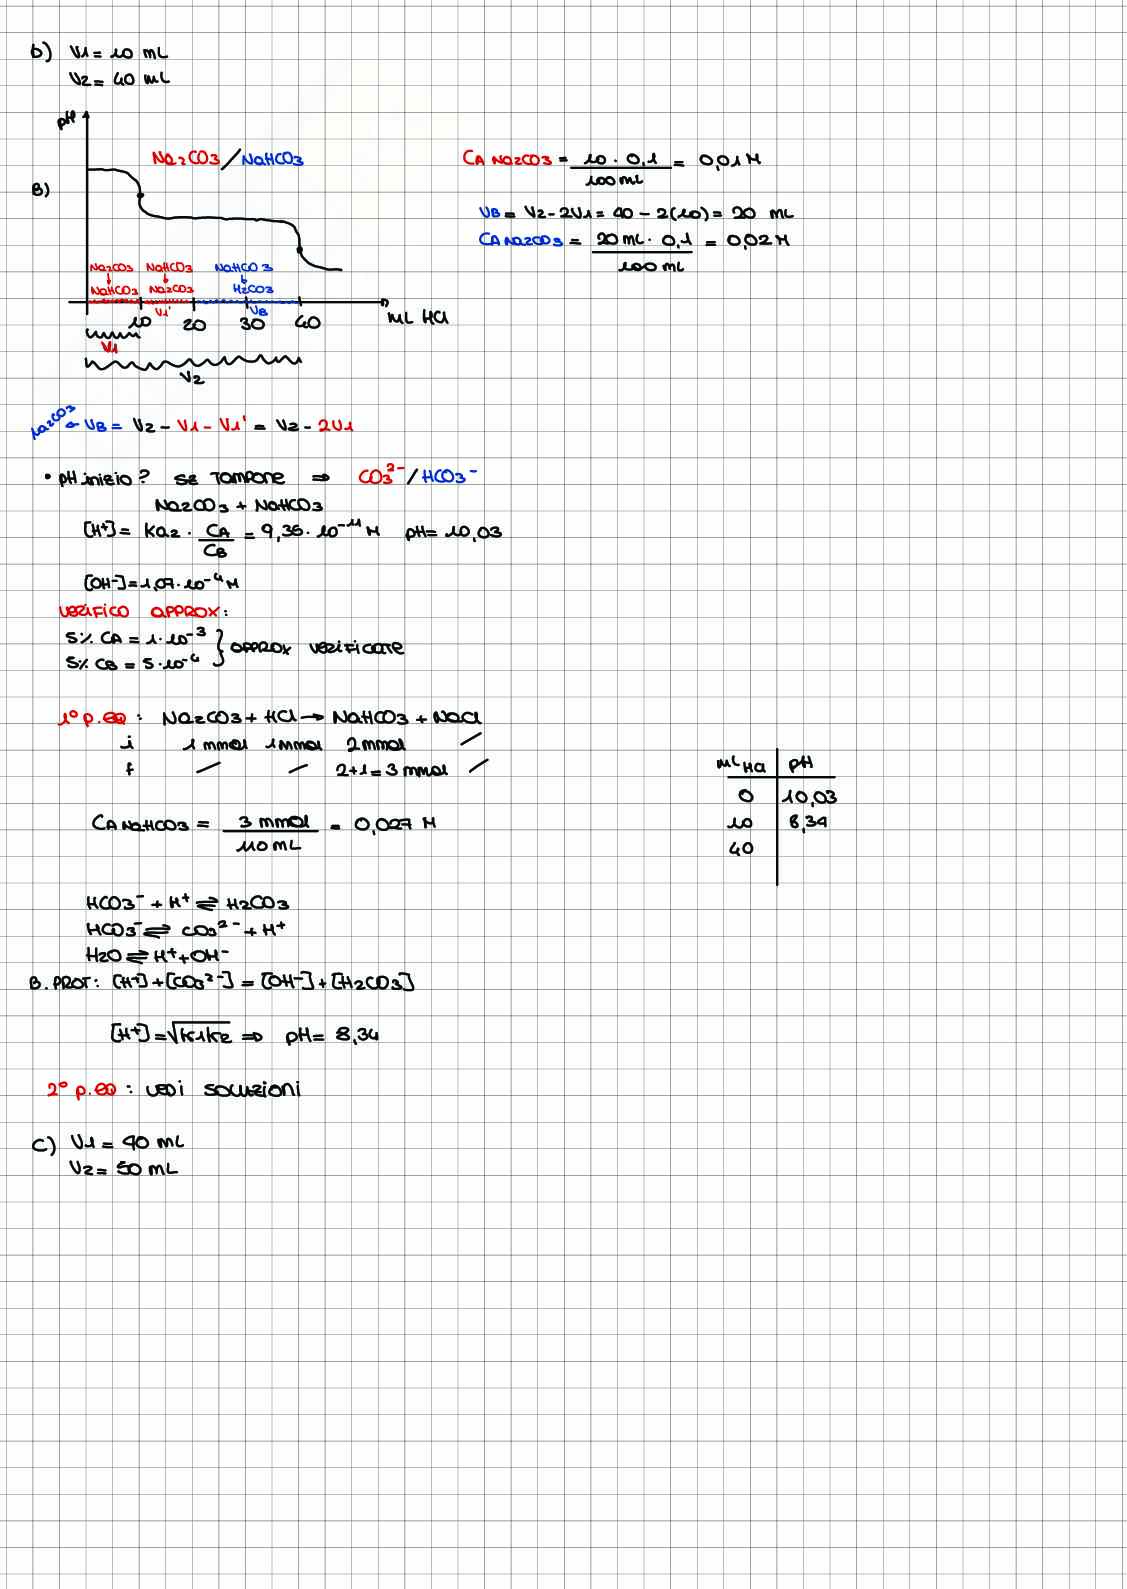 b) V1 = 10 mL
V2 = 40 mL
pH
Na2CO3 / NaHCO3
B)
Na2CO3 NaHCO3 NaHCO3
↓ ↓ ↓
NaHCO3 Na2CO3 H2CO3
V1' VB
10 20 30 40 mL HCl
V1
V2
CA Na2CO3 = 10 · 0,1 / 100 mL = 0,01 M
VB = V2 - 2V1 = 40 - 2(10) = 20 mL
CA Na2CO3 = 20 mL · 0,1 / 100 mL = 0,02 M
Na2CO3 ← VB = V2 - V1 - V1' = V2 - 2V1
• pH inizio? se TAMPONE ⇒ CO3²⁻ / HCO3⁻
Na2CO3 + NaHCO3
[H⁺] = Ka2 · CA / CB = 9,36 · 10⁻¹¹ M pH = 10,03
[OH⁻] = 1,07 · 10⁻⁴ M
VERIFICO APPROX:
5% CA = 1 · 10⁻³
5% CB = 5 · 10⁻⁴ } APPROX VERIFICATE
1° p.eq : Na2CO3 + HCl → NaHCO3 + NaCl
i 1 mmol 1 mmol 2 mmol /
f / / 2+1 = 3 mmol /
CA NaHCO3 = 3 mmol / 110 mL = 0,027 M
mL HCl pH
0 10,03
10 8,34
40
HCO3⁻ + H⁺ ⇌ H2CO3
HCO3⁻ ⇌ CO3²⁻ + H⁺
H2O ⇌ H⁺ + OH⁻
B. PROT: [H⁺] + [CO3²⁻] = [OH⁻] + [H2CO3]
[H⁺] = √K1K2 ⇒ pH = 8,34
2° p.eq : vedi soluzioni
C) V1 = 40 mL
V2 = 50 mL